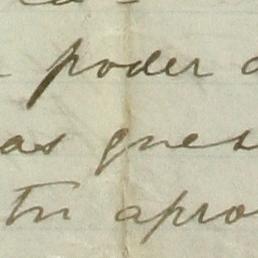 poder
as ques
tu apro